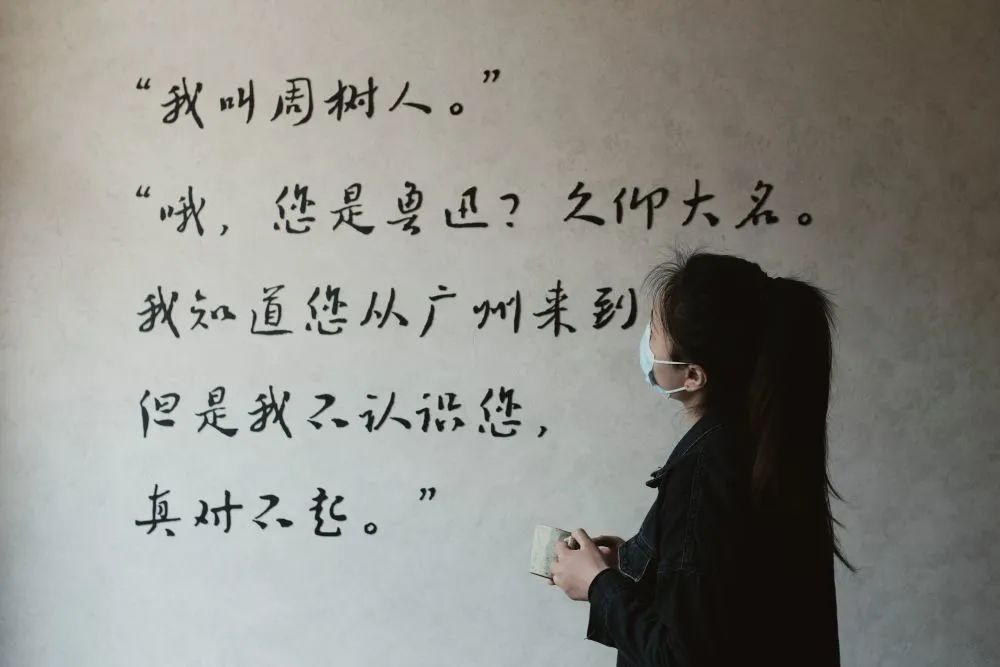 “我叫周树人。”
“哦，您是鲁迅？久仰大名。
我知道您从广州来到
但是我不认识您，
真对不起。”